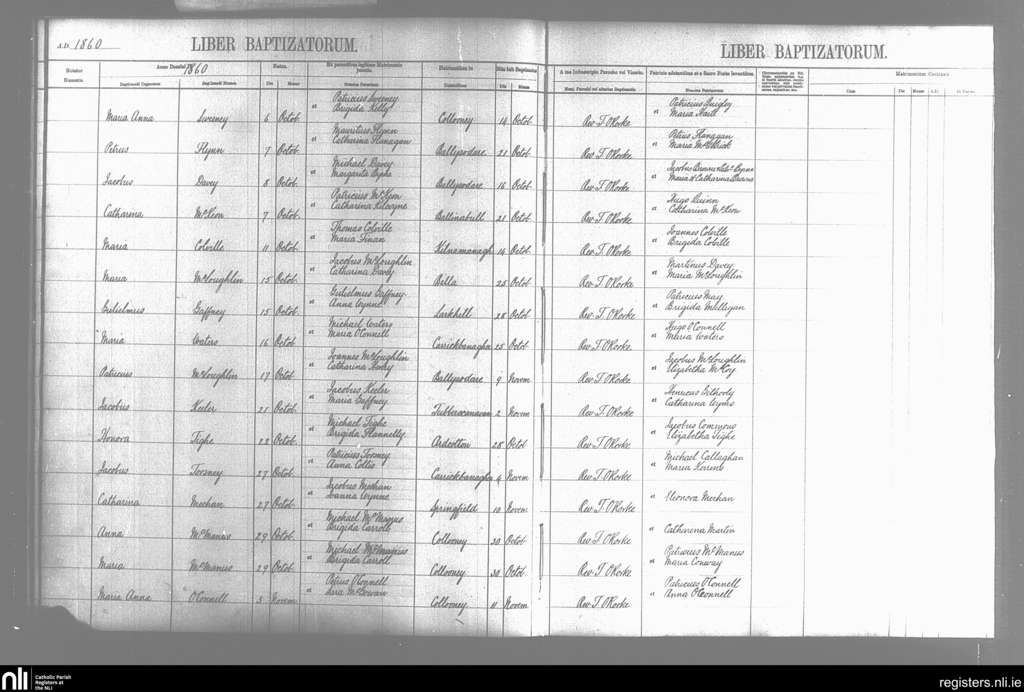 A.D. 1860
LIBER BAPTIZATORUM.
LIBER BAPTIZATORUM.
Anno Domini 1860
Natus.
Matrimonium Contraxit
Die Mense
Maria Anna Sweeney 6 Octob. Patricius Sweeney et Brigida Kelly Collooney 14 Octob. Rev. T. O'Rorke Patricius Quigley et Maria Hart
Petrus Flynn 7 Octob. Mauritius Flynn et Catharina Flanagan Ballysodare 21 Octob. Rev. T. O'Rorke Petrus Flanagan et Maria
Jacobus Davey 8 Octob. Michael Davey et Margarita Ballysodare 16 Octob. Rev. T. O'Rorke Jacobus et Maria & Catharina
Catharina McKeon 7 Octob. Patricius McKeon et Catharina Kilcoyne Ballinabull 21 Octob. Rev. T. O'Rorke Hugo Quinn et Catharina McKeon
Maria Colville 11 Octob. Thomas Colville et Maria Finan Kilnamanagh 14 Octob. Rev. T. O'Rorke Joannes Colville et Brigida Colville
Maria McLoughlin 15 Octob. Jacobus McLoughlin et Catharina Davey Billa 25 Octob. Rev. T. O'Rorke Martinus Davey et Maria McLoughlin
Gulielmus Gaffney 15 Octob. Gulielmus Gaffney et Anna Wynne Larkhill 28 Octob. Rev. T. O'Rorke Patricius May et Brigida Mulligan
Maria Waters 16 Octob. Michael Waters et Maria O'Connell Carrickbanagher 25 Octob. Rev. T. O'Rorke Hugo O'Connell et Maria Waters
Patricius McLoughlin 17 Octob. Joannes McLoughlin et Catharina Ballysodare 9 Novem. Rev. T. O'Rorke Jacobus McLoughlin et Elizabetha McCoy
Jacobus Keeler 21 Octob. Jacobus Keeler et Maria Gaffney 2 Novem. Rev. T. O'Rorke Henricus et Catharina
Honora Tighe 22 Octob. Michael Tighe et Brigida Flannelly Ardcotton 28 Octob. Rev. T. O'Rorke Jacobus Commons et Elizabetha Tighe
Jacobus Toomey 27 Octob. Patricius Toomey et Anna Carrickbanagher 4 Novem. Rev. T. O'Rorke Michael Callaghan et Maria
Catharina Meehan 27 Octob. Jacobus Meehan et Joanna Wynne Springfield 10 Novem. Rev. T. O'Rorke et Eleonora Meehan
Anna McManus 29 Octob. Michael McManus et Brigida Carroll Collooney 30 Octob. Rev. T. O'Rorke et Catharina Martin
Maria McManus 29 Octob. Michael McManus et Brigida Carroll Collooney 30 Octob. Rev. T. O'Rorke Patricius McManus et Maria Conway
Maria Anna O'Connell 3 Novem. Petrus O'Connell et Sara McGowan Collooney 11 Novem. Rev. T. O'Rorke Patricius O'Connell et Anna O'Connell
nli Catholic Parish
Registers at
the NLI
registers.nli.ie